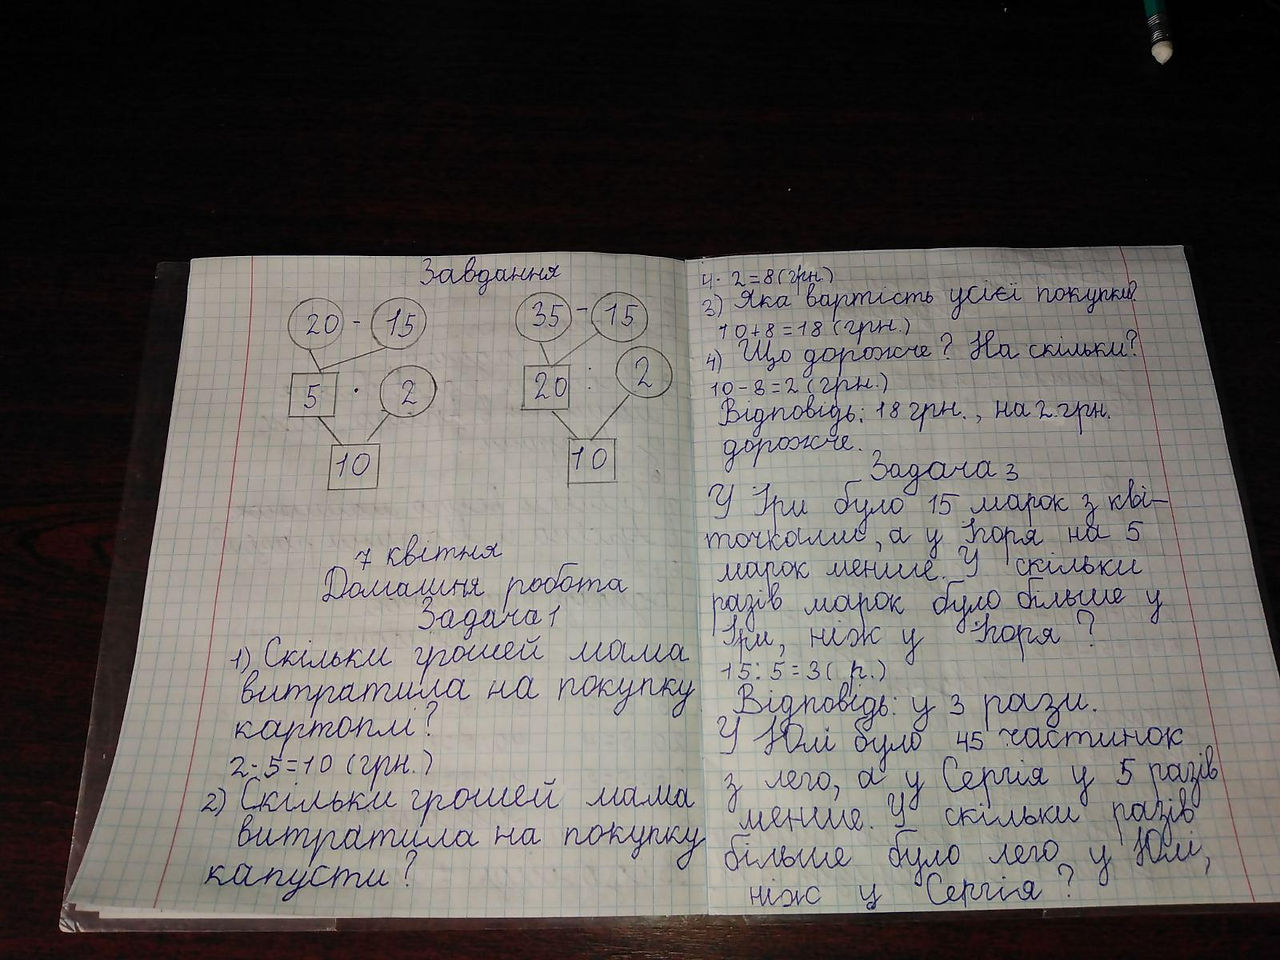 Завдання
20 - 15
5 · 2
10
35 - 15
20 : 2
10
7 квітня
Домашня робота
Задача 1
1) Скільки грошей мама
витратила на покупку
картоплі?
2·5=10 (грн.)
2) Скільки грошей мама
витратила на покупку
капусти?
4·2=8 (грн.)
3) Яка вартість усієї покупки?
10+8=18 (грн.)
4) Що дорожче? На скільки?
10-8=2 (грн.)
Відповідь: 18 грн., на 2 грн.
дорожче.
Задача 3
У Іри було 15 марок з кві-
точками, а у Ігоря на 5
марок менше. У скільки
разів марок було більше у
Іри, ніж у Ігоря?
15:5=3 (р.)
Відповідь: у 3 рази.
У Юлі було 45 частинок
з лего, а у Сергія у 5 разів
менше. У скільки разів
більше було лего у Юлі,
ніж у Сергія?